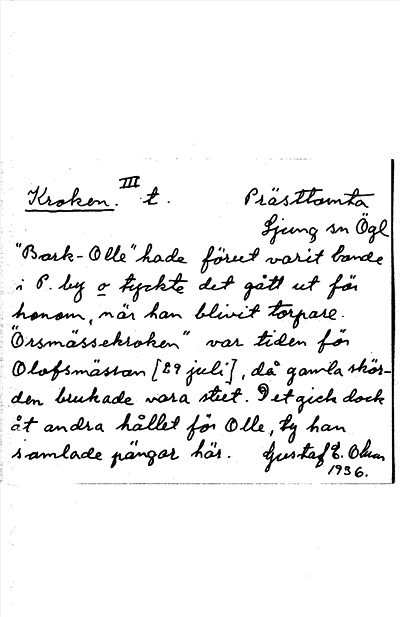 Kroken. III t. Prästtomta
Ljung sn Ögl
"Bark-Olle" hade förut varit bonde
i P. by o tyckte det gått ut för
honom, när han blivit torpare.
"Orsmässekroken" var tiden för
Olofsmässan [29 juli], då gamla skör-
den brukade vara slut. Det gick dock
åt andra hållet för Olle, ty han
samlade pängar här. Gustaf E.
1936.